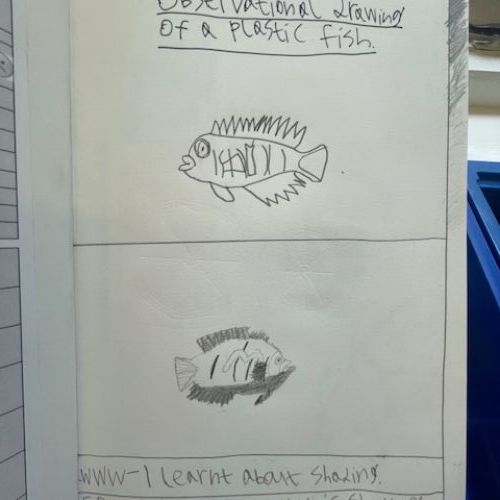 Observational drawing
Of a plastic fish.
WWW- I learnt about shading.